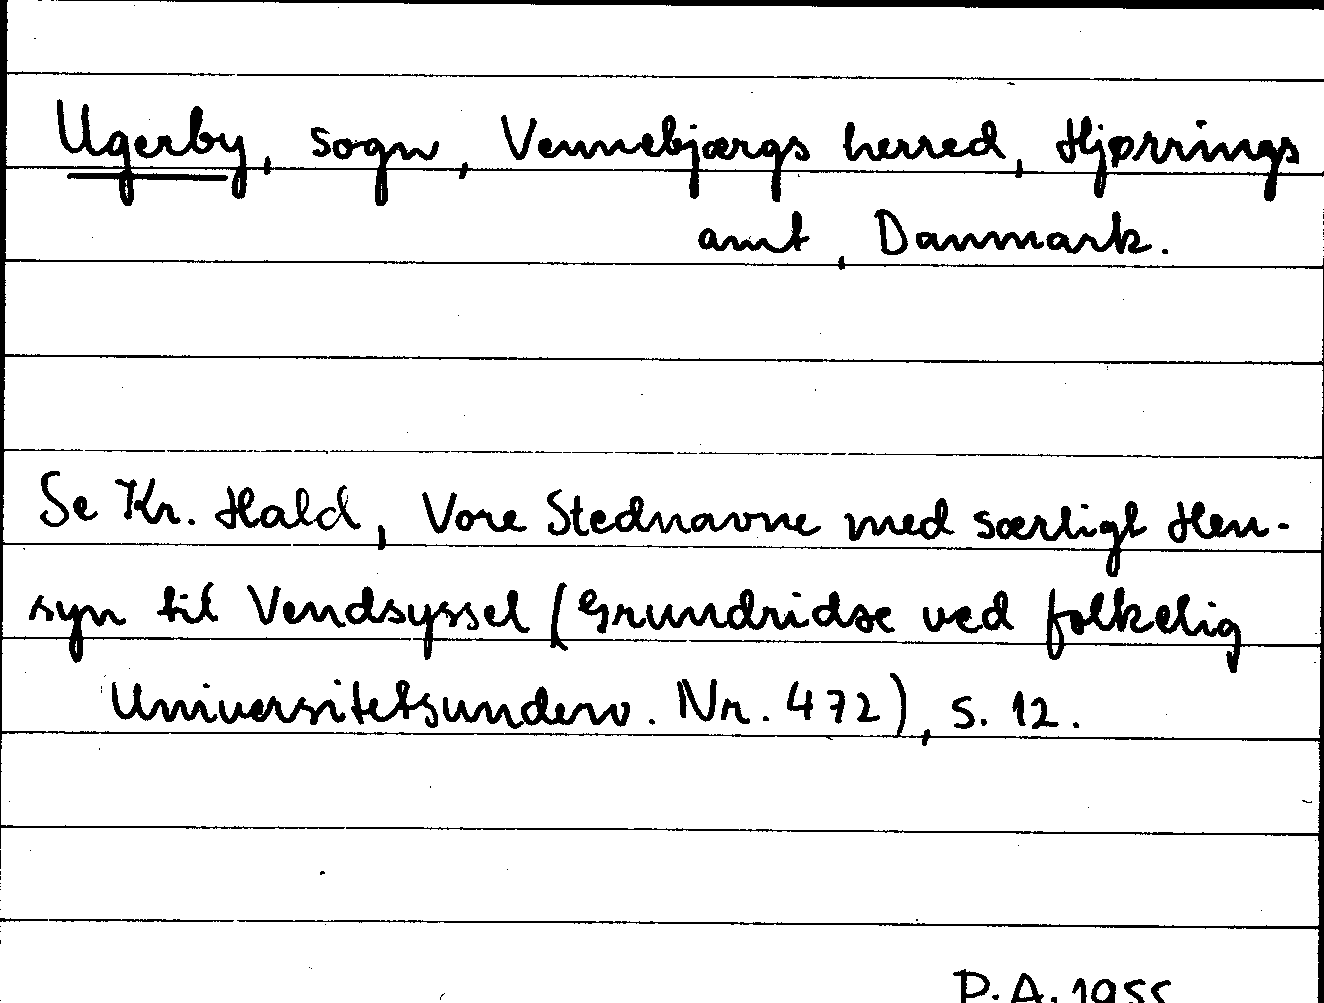 Ugerby, sogn, Vennebjærgs herred, Hjørrings
amt, Danmark.
Se Kr. Hald, Vore Stednavne med særligt Hen-
syn til Vendsyssel (Grundridse ved folkelig
Universitetsunderv. Nr. 472), s. 12.
P.A. 1955